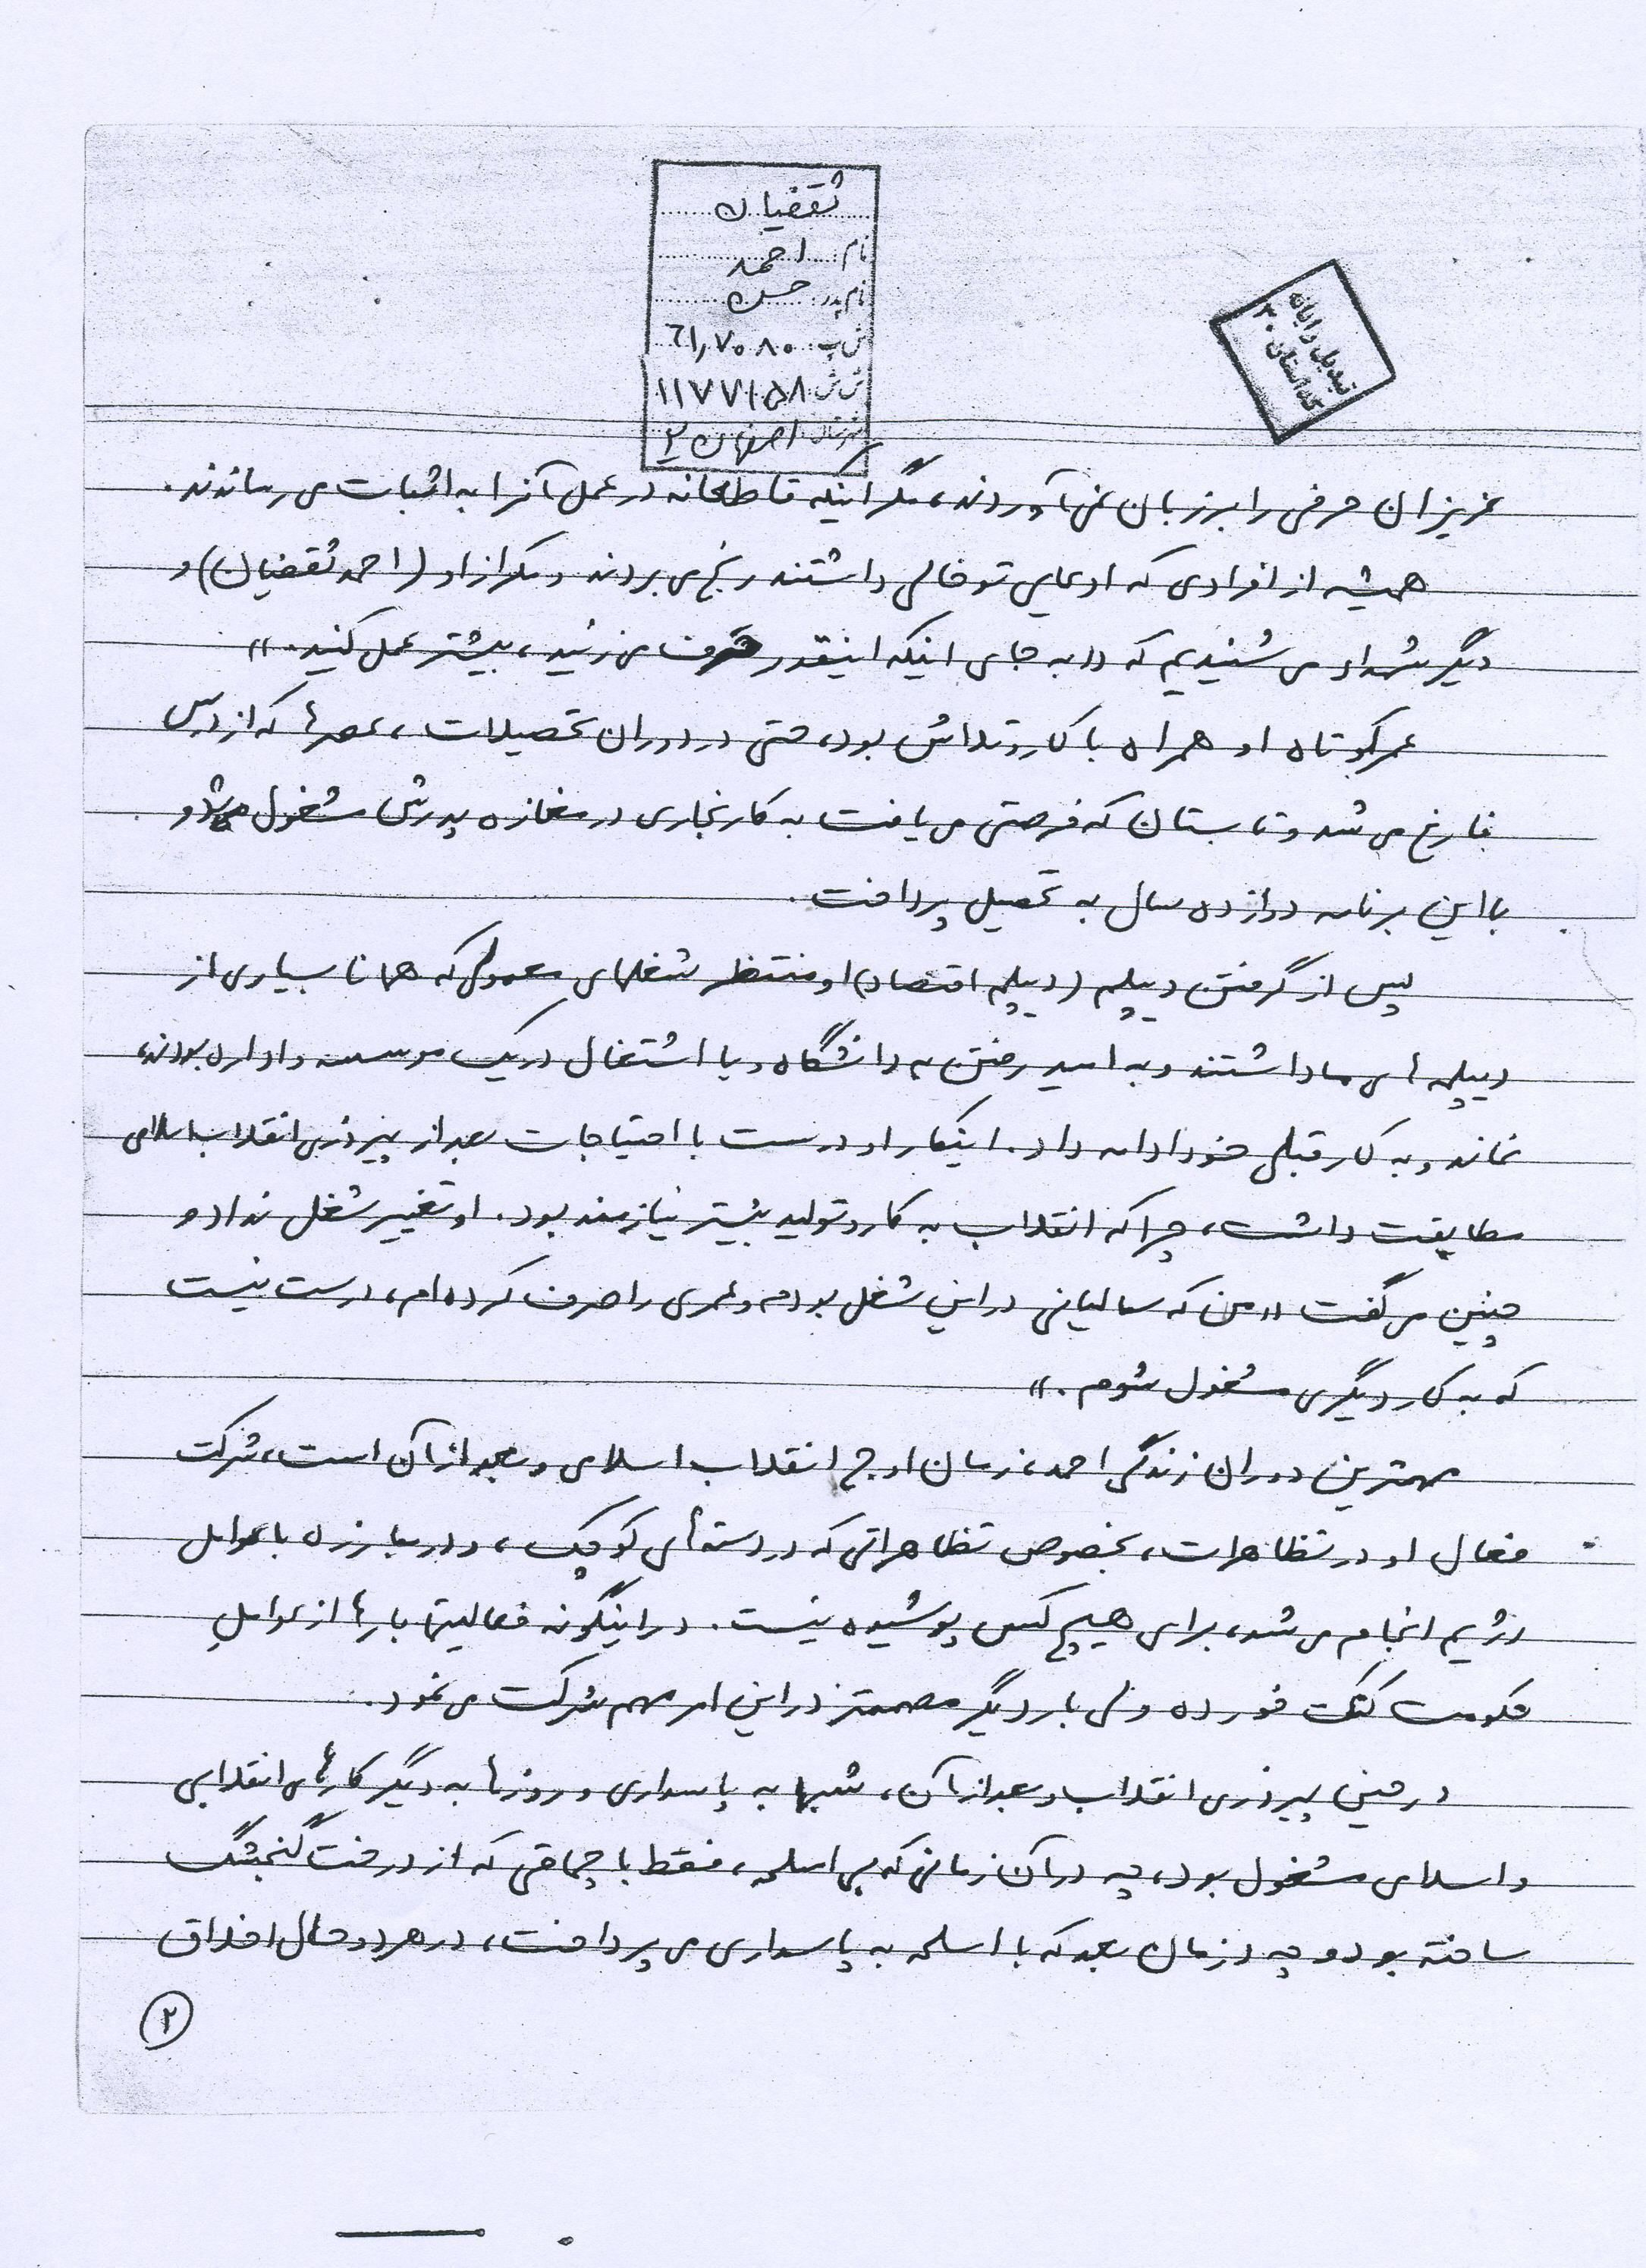 ثقفیان
نام: احمد
نام پدر: حسن
ش پ: ۶۱٫۷۰۸۰
ش ش: ۱۱۷۷۱۵۸
شهرستان: اصفهان ۲
تبدیل رایانه
کد استان ۳۰
عزیزان حرفی را بر زبان نمی‌آوردند، مگر اینکه قاطعانه در عمل آنرا به اثبات می رساندند.
همیشه از افرادی که ادعایی تو خالی داشتند رنج می بردند و مکرر از او (احمد ثقفیان) و
دیگر شهداء می شنیدیم که «به جای اینکه اینقدر حرف می زنید، بیشتر عمل کنید.»
عمر کوتاه او همراه با کار و تلاش بود، حتی در دوران تحصیلات، عصرها که از درس
فارغ می شد و تابستان که فرصتی می یافت به کار نجاری در مغازه پدرش مشغول می شد و
با این برنامه دوازده سال به تحصیل پرداخت.
پس از گرفتن دیپلم (دیپلم اقتصاد) او منتظر شغلهای معمولی که همانا بسیاری از
دیپلمه های ما داشتند و به امید رفتن به دانشگاه و یا اشتغال در یک موسسه و اداره بودند،
نماند و به کار قبلی خود ادامه داد. اینکار او درست با احتیاجات بعد از پیروزی انقلاب اسلامی
مطابقت داشت، چرا که انقلاب به کار و تولید بیشتر نیازمند بود. او تغییر شغل نداد و
چنین می گفت «من که سالیانی در این شغل بودم و عمری را صرف کرده ام، درست نیست
که به کار دیگری مشغول شوم.»
مهمترین دوران زندگی احمد، زمان اوج انقلاب اسلامی و بعد از آن است، شرکت
فعال او در تظاهرات، بخصوص تظاهراتی که در دسته های کوچک، و در مبارزه با عوامل
رژیم انجام می شد، برای هیچ کس پوشیده نیست. در اینگونه فعالیتها بارها از عوامل
حکومت کتک خورده ولی بار دیگر مصممتر در این امر مهم شرکت می نمود.
در حین پیروزی انقلاب و بعد از آن، شبها به پاسداری و روزها به دیگر کارهای انقلابی
و اسلامی مشغول بود، چه در آن زمانی که بی اسلحه، فقط با چماقی که از درخت گنجشگ
ساخته بود و چه در زمان بعد که با اسلحه به پاسداری می پرداخت، در هر دو حال اخلاق
۲